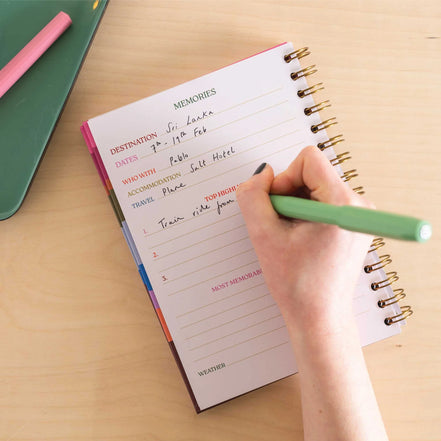 MEMORIES
DESTINATION Sri Lanka
DATES 7th - 19th Feb
WHO WITH Pablo
ACCOMMODATION Salt Hotel
TRAVEL Plane
TOP HIGH
1. Train ride from
2.
3.
MOST MEMORAB
WEATHER